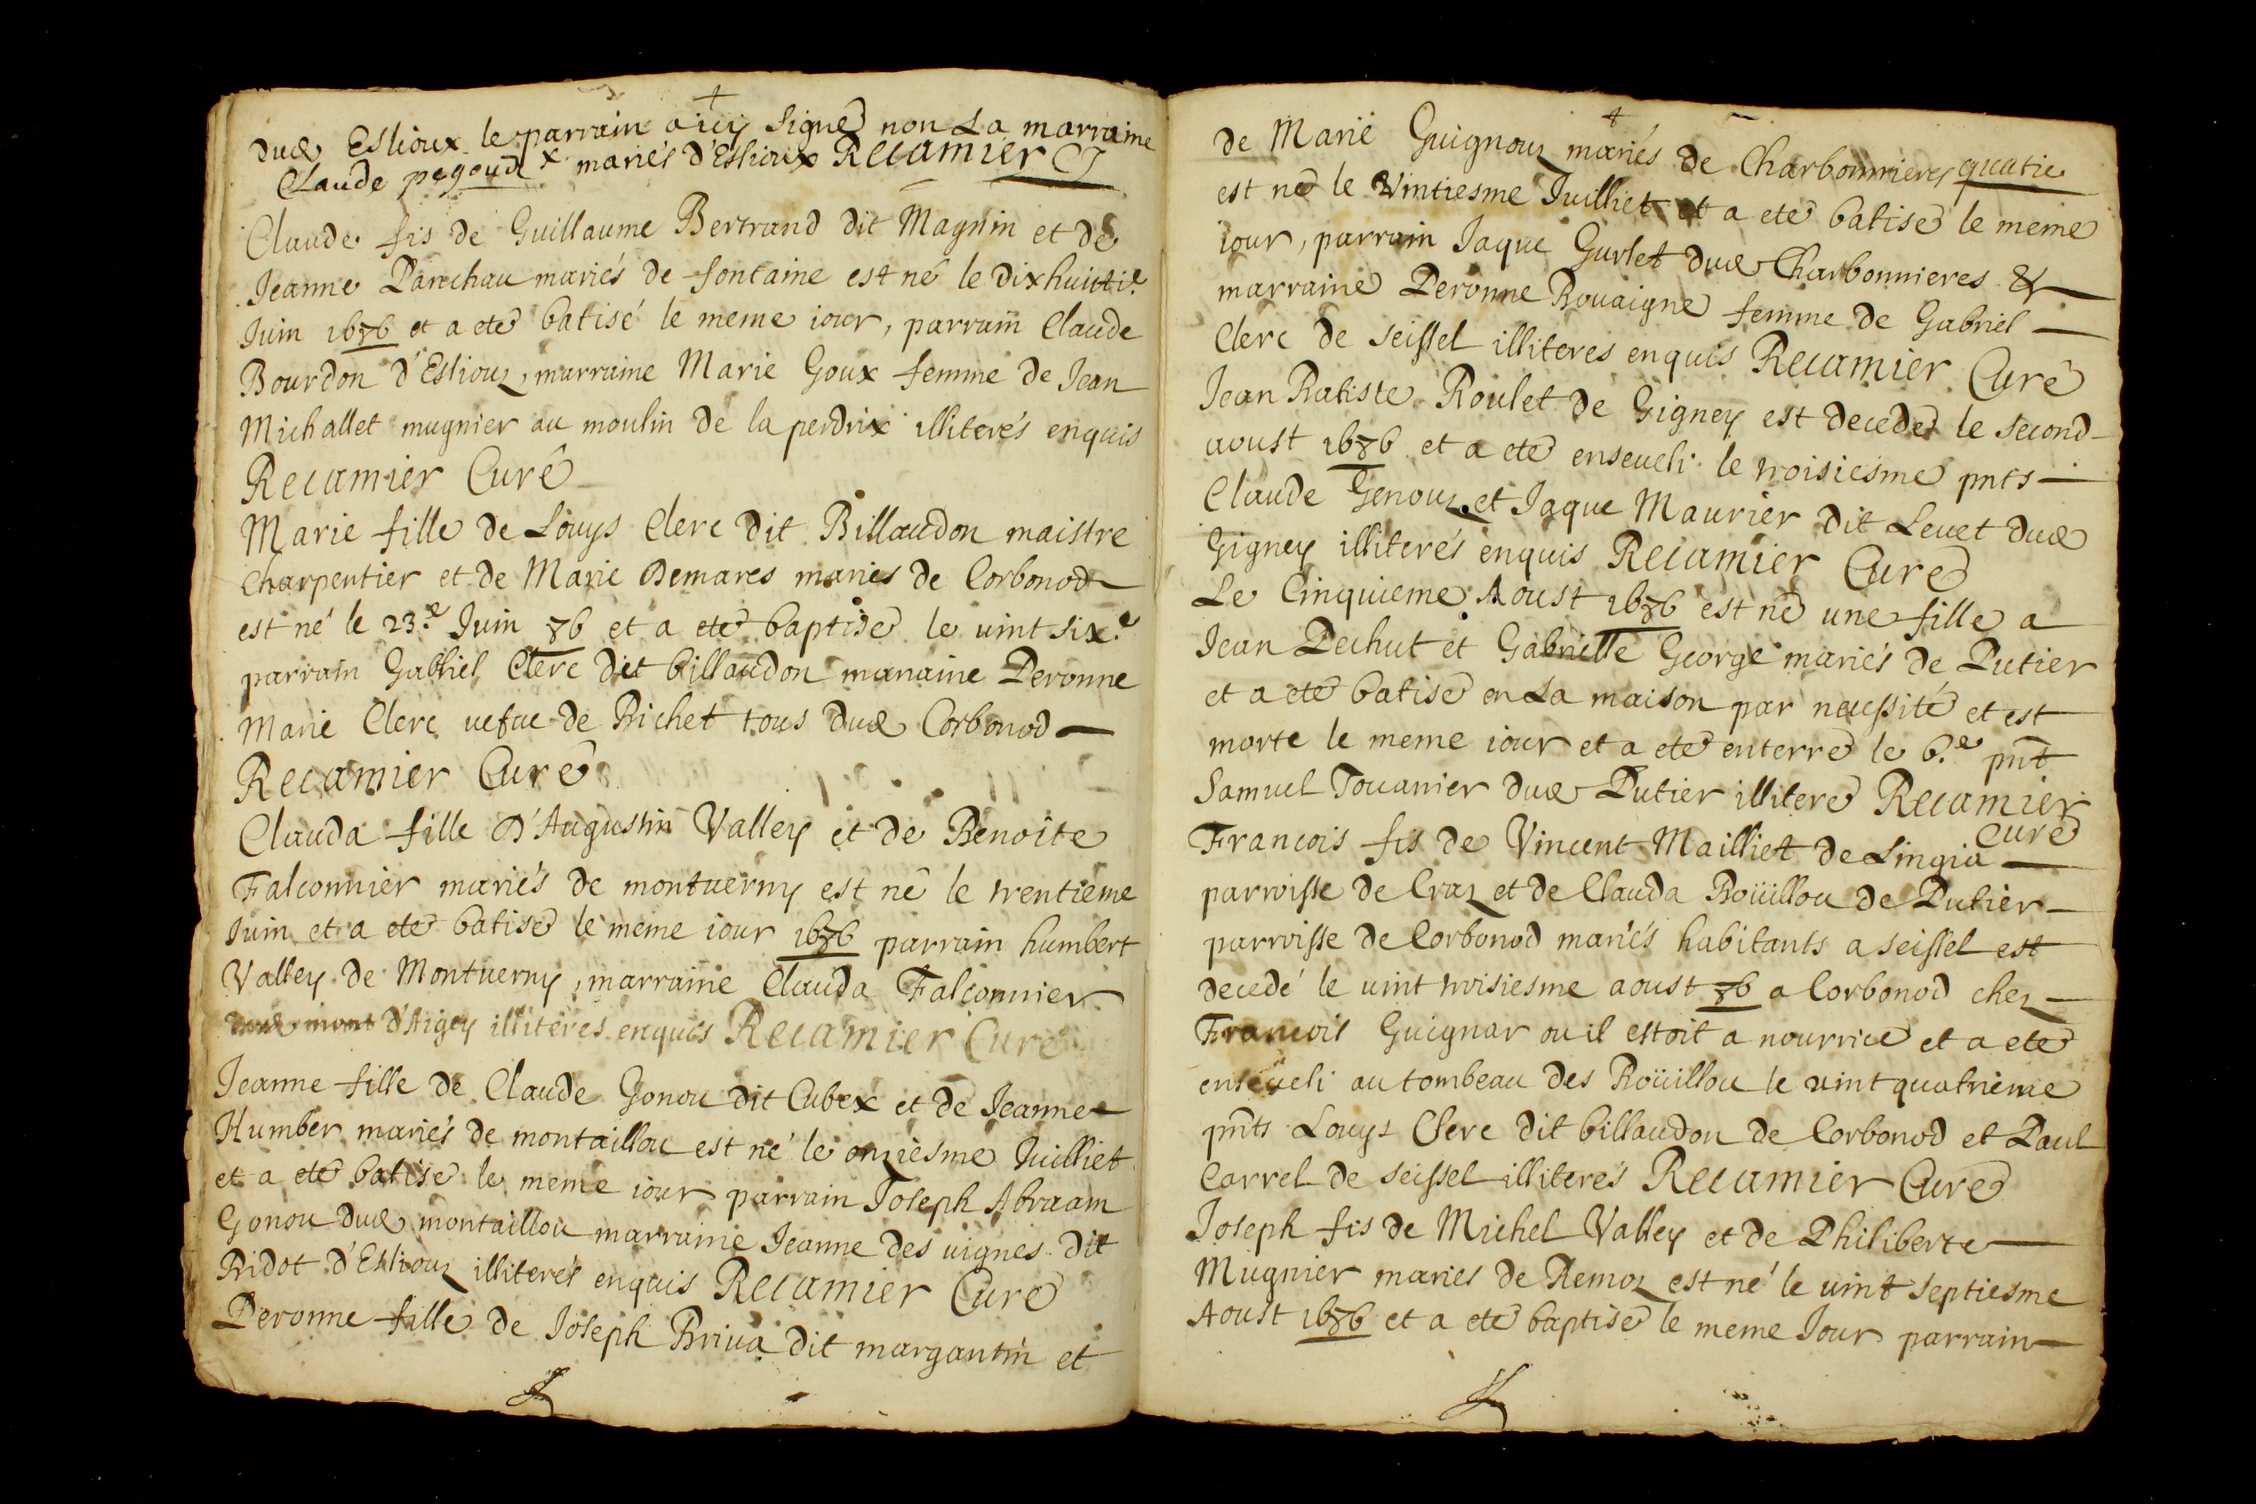 dud Eslioux le parrain a icy signé non La marraine
Claude pegoud x mariés d'Eslioux Recamier C
Claude fis de Guillaume Bertrand dit Magnin et de
Jeanne Parchau mariés de fontaine est né le dixhuitie
Juin 1676 et a eté batisé le meme iour, parrain Claude
Bourdon d'Esliouz, marraine Marie Goux femme de Jean
Michallet mugnier au moulin de la perdrix illiterés enquis
Recamier Curé
Marie fille de Louys Clerc dit Billaudon maistre
Charpentier et de Marie Demares mariés de Corbonod
est né le 23e Juin 76 et a eté baptisé le uint sixe
parrain Gabriel Clerc dit billaudon maraine Peronne
Marie Clerc uefue de Richet tous dud Corbonod
Recamier Curé
Clauda fille d'Augustin Valley et de Benoite
Falconnier mariés de montuerny est né le trentieme
Juin et a eté batisé le meme iour 1676 parrain humbert
Valley de Montuerny, marraine Clauda Falconnier
dud mont d'Aigey illiterés enquis Recamier Curé
Jeanne fille de Claude Gonou dit Cubex et de Jeanne
Humber mariés de montaillou est né le onziesme Juilliet
et a eté batisé le meme iour parrain Joseph Abraam
Gonou dud montaillou marraine Jeanne des uignes dit
Bidot d'Esliouz illiterés enquis Recamier Curé
Peronne fille de Joseph Briua dit margantin et
de Marie Guignouz mariés de Charbonnieres
est né le Vintiesme Juilliet et a eté batisé le meme
iour, parrain Jaque Gurlet dud Charbonnieres &
marraine Peronne Rouaigne femme de Gabriel
Clerc de seissel illiteres enquis Recamier Curé
Jean Batiste Roulet de Gigney est decedé le second
aoust 1676 et a eté enseueli le troisiesme pnts
Claude Genouz et Jaque Maurier dit Leuet dud
Gigney illiterés enquis Recamier Curé
Le Cinquieme Aoust 1676 est né une fille a
Jean Pechut et Gabrielle George mariés de Putier
et a eté batisé en La maison par necessité et est
morte le meme iour et a eté enterré le 6e pnt
Samuel Touanier dud Putier illiteré Recamier
Curé
Francois fis de Vincent Mailliet de Lingia
parroisse de Craz et de Clauda Roüillou de Putier
parroisse de Corbonod mariés habitants a seissel est
decedé le uint troisiesme aoust 76 a Corbonod chez
Francois Guignar ou il estoit a nourrice et a eté
enseueli au tombeau des Roüillou le uint quatrieme
pnts Louys Clerc dit billaudon de Corbonod et Paul
Carrel de seissel illiterés Recamier Curé
Joseph fis de Michel Valley et de Philiberte
Mugnier mariés de Remoz est né le uint septiesme
Aoust 1676 et a eté baptisé le meme Jour parrain